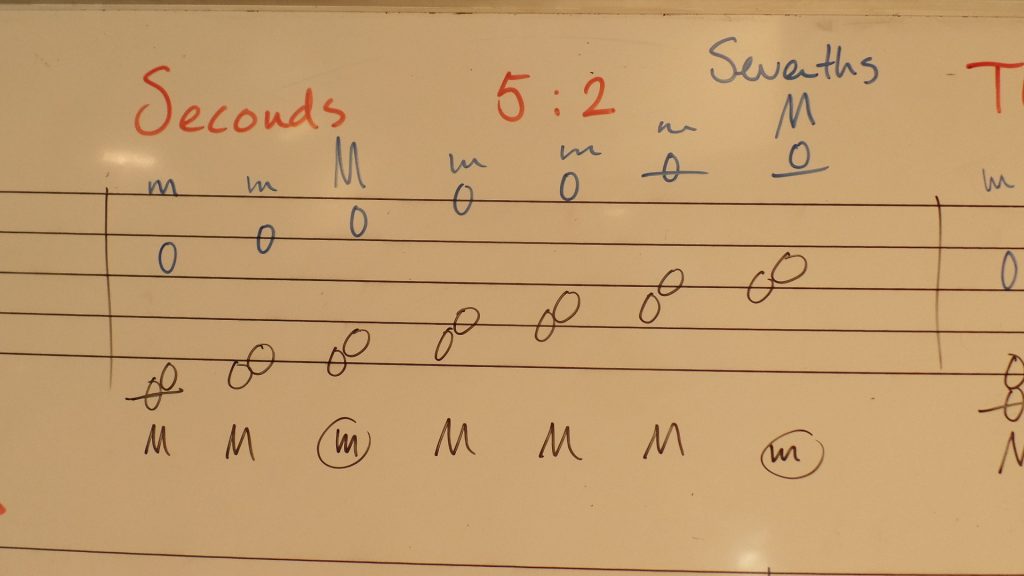 Seconds 5:2 Sevenths
m m M m m m M m
M M m M M M m M